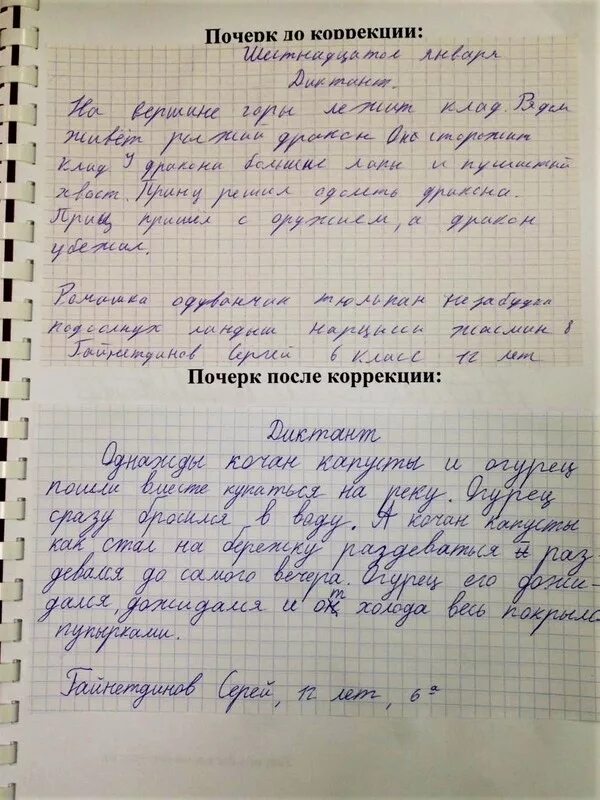 Почерк до коррекции:
Шестнадцатое января
Диктант.
На вершине горы лежит клад. Рядом
живёт рыжий дракон Он сторожит
клад У дракона большие лапы и пушистый
хвост. Принц решил одолеть дракона.
Принц пришел с оружием, а дракон
убежал.
Ромашка одуванчик тюльпан незабудка
подсолнух ландыш нарцисс жасмин 8
Гайнетдинов Сергей 6 класс 12 лет
Почерк после коррекции:
Диктант
Однажды кочан капусты и огурец
пошли вместе купаться на реку. Огурец
сразу бросился в воду. А кочан капусты
как стал на бережку раздеваться раз
девался до самого вечера. Огурец его дожи-
дался, дожидался и от холода весь покрылся
пупырками.
Гайнетдинов Серей, 12 лет, 6а